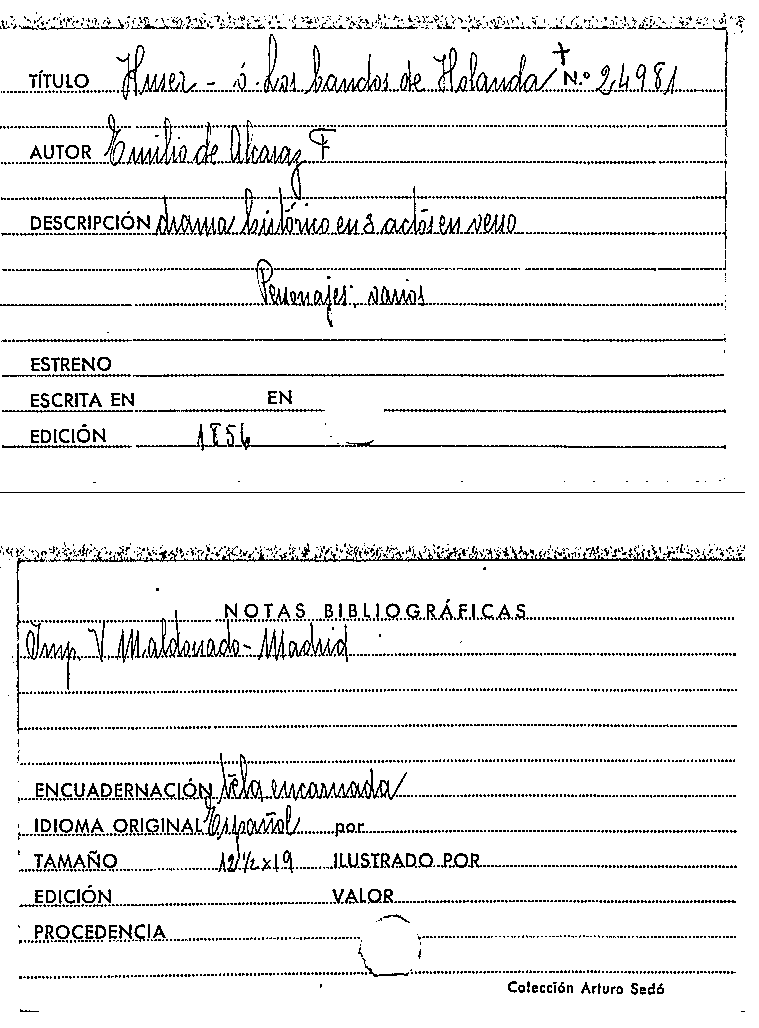 TÍTULO Huser - ó. Los bandos de Holanda N.º 24981
AUTOR Emilio de Alcaraz F
DESCRIPCIÓN drama histórico en 3 actos en verso
Personajes: varios
ESTRENO
ESCRITA EN EN
EDICIÓN 1856
NOTAS BIBLIOGRÁFICAS
Imp. V. Maldonado - Madrid
ENCUADERNACIÓN tela encarnada
IDIOMA ORIGINAL Español por
TAMAÑO 12 ½ x 19 ILUSTRADO POR
EDICIÓN VALOR
PROCEDENCIA
Colección Arturo Sedó